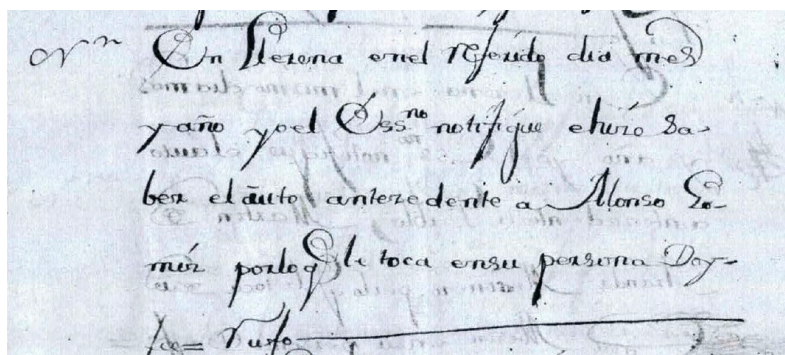 Nn
En Llerena enel Referido dia mes
y año yo el Essno notifique e hize sa-
ber el auto antezedente a Alonso Go-
mez porlo q le toca ensu persona Doy-
fee=